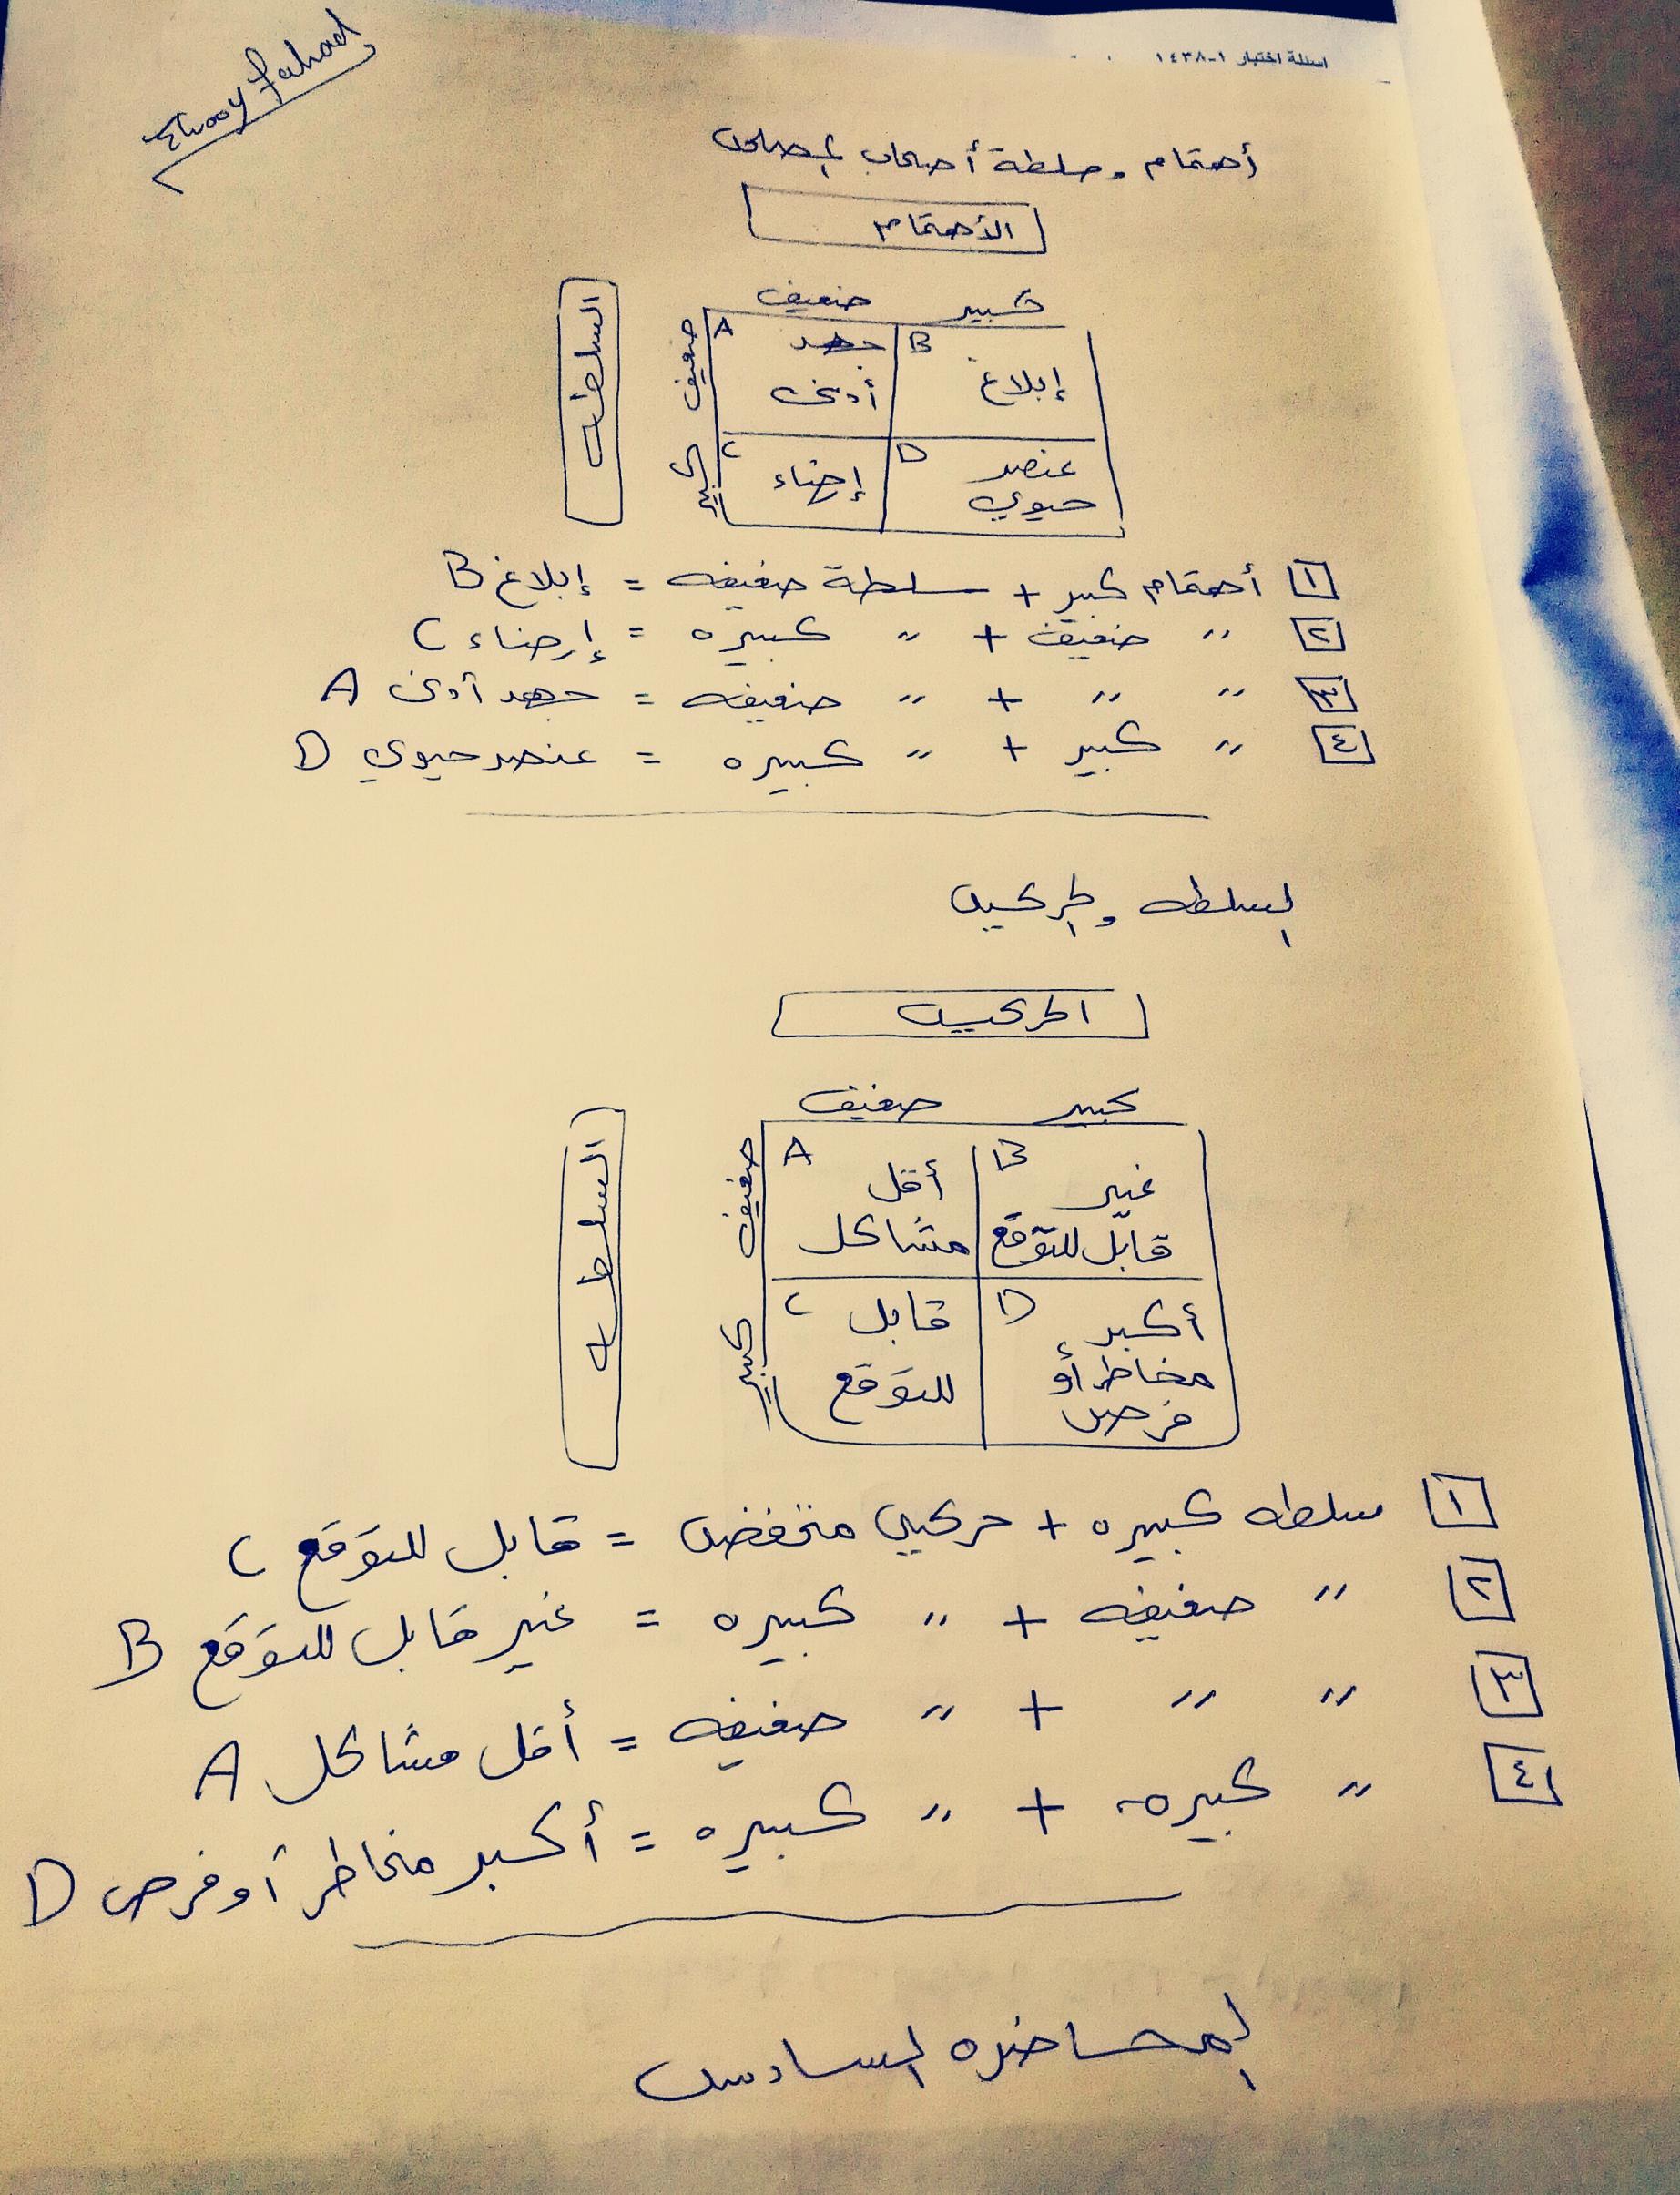 اسئلة اختبار ١-١٤٣٨
Fahad
أهتمام وسلطة أصحاب المصلحة
الأهتمام
كبير ضعيف
السلطه
ضعيف
كبير
A جهد أدنى
B إبلاغ
C إرضاء
D عنصر حيوي
١ أهتمام كبير + سلطة ضعيفه = إبلاغ B
٢ 〃 ضعيف + 〃 كبيره = إرضاء C
٣ 〃 〃 + 〃 ضعيفه = جهد أدنى A
٤ 〃 كبير + 〃 كبيره = عنصر حيوي D
السلطه والحركيه
الحركيه
كبير ضعيف
السلطه
ضعيف
كبير
A أقل مشاكل
B غير قابل للتوقع
C قابل للتوقع
D أكبر مخاطر أو فرص
١ سلطه كبيره + حركيه منخفضه = قابل للتوقع C
٢ 〃 ضعيفه + 〃 كبيره = غير قابل للتوقع B
٣ 〃 〃 + 〃 ضعيفه = أقل مشاكل A
٤ 〃 كبيره + 〃 كبيره = أكبر مخاطر أو فرص D
المحاضره السادسه